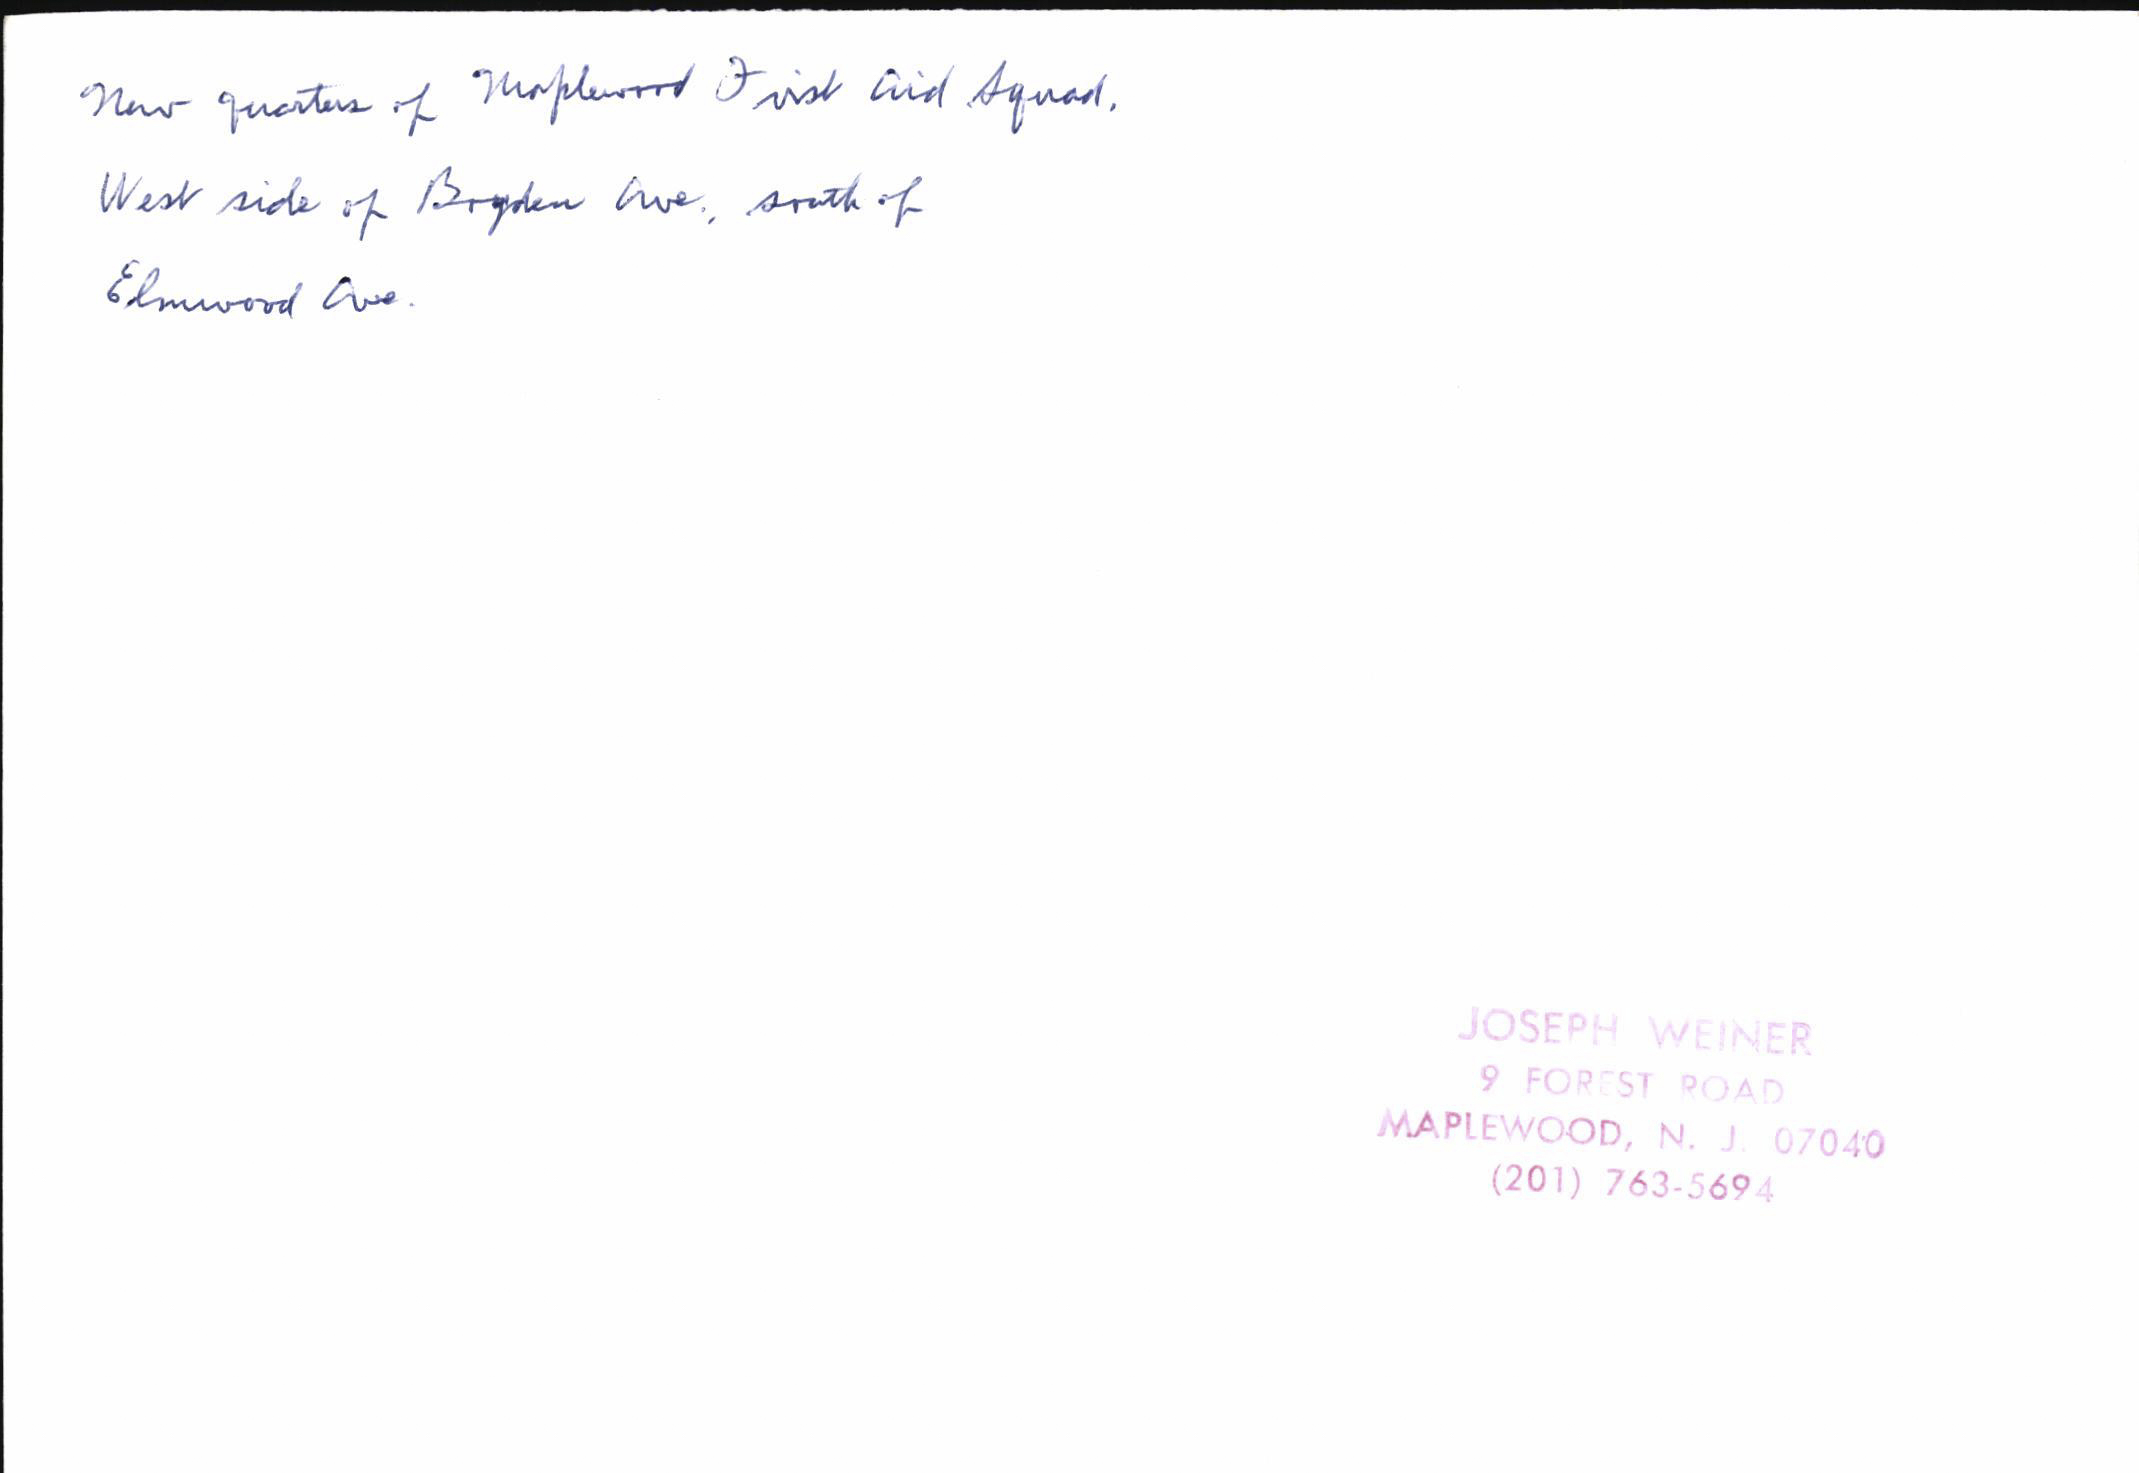 New quarters of Maplewood First Aid Squad.
West side of Boyden Ave., south of
Elmwood Ave.
JOSEPH WEINER
9 FOREST ROAD
MAPLEWOOD, N. J. 07040
(201) 763-5694